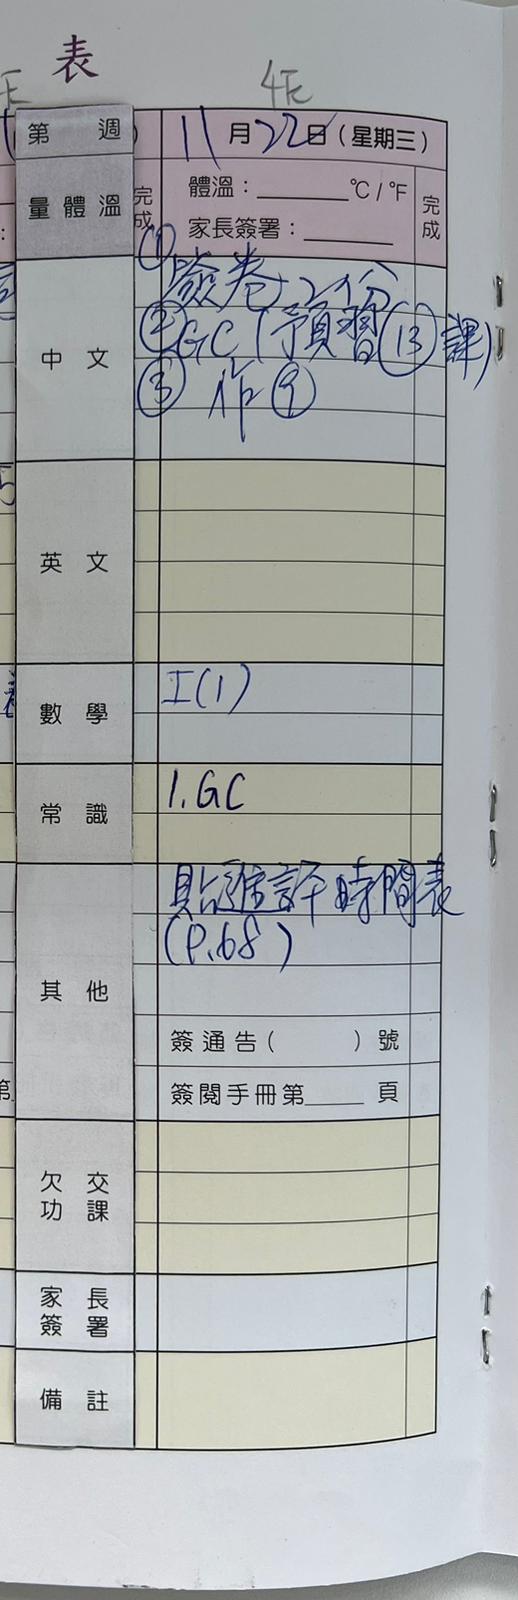 表
4E
第 週
11月22日(星期三)
量體溫
完成
體溫：______℃/℉
家長簽署：______
完成
中文
① 驗卷×2份
② GC(預習⑬課)
③ 作⑨
英文
數學
I(1)
常識
1.GC
其他
貼進評時間表
(P.68)
簽通告( )號
簽閱手冊第____頁
欠交功課
家長簽署
備註